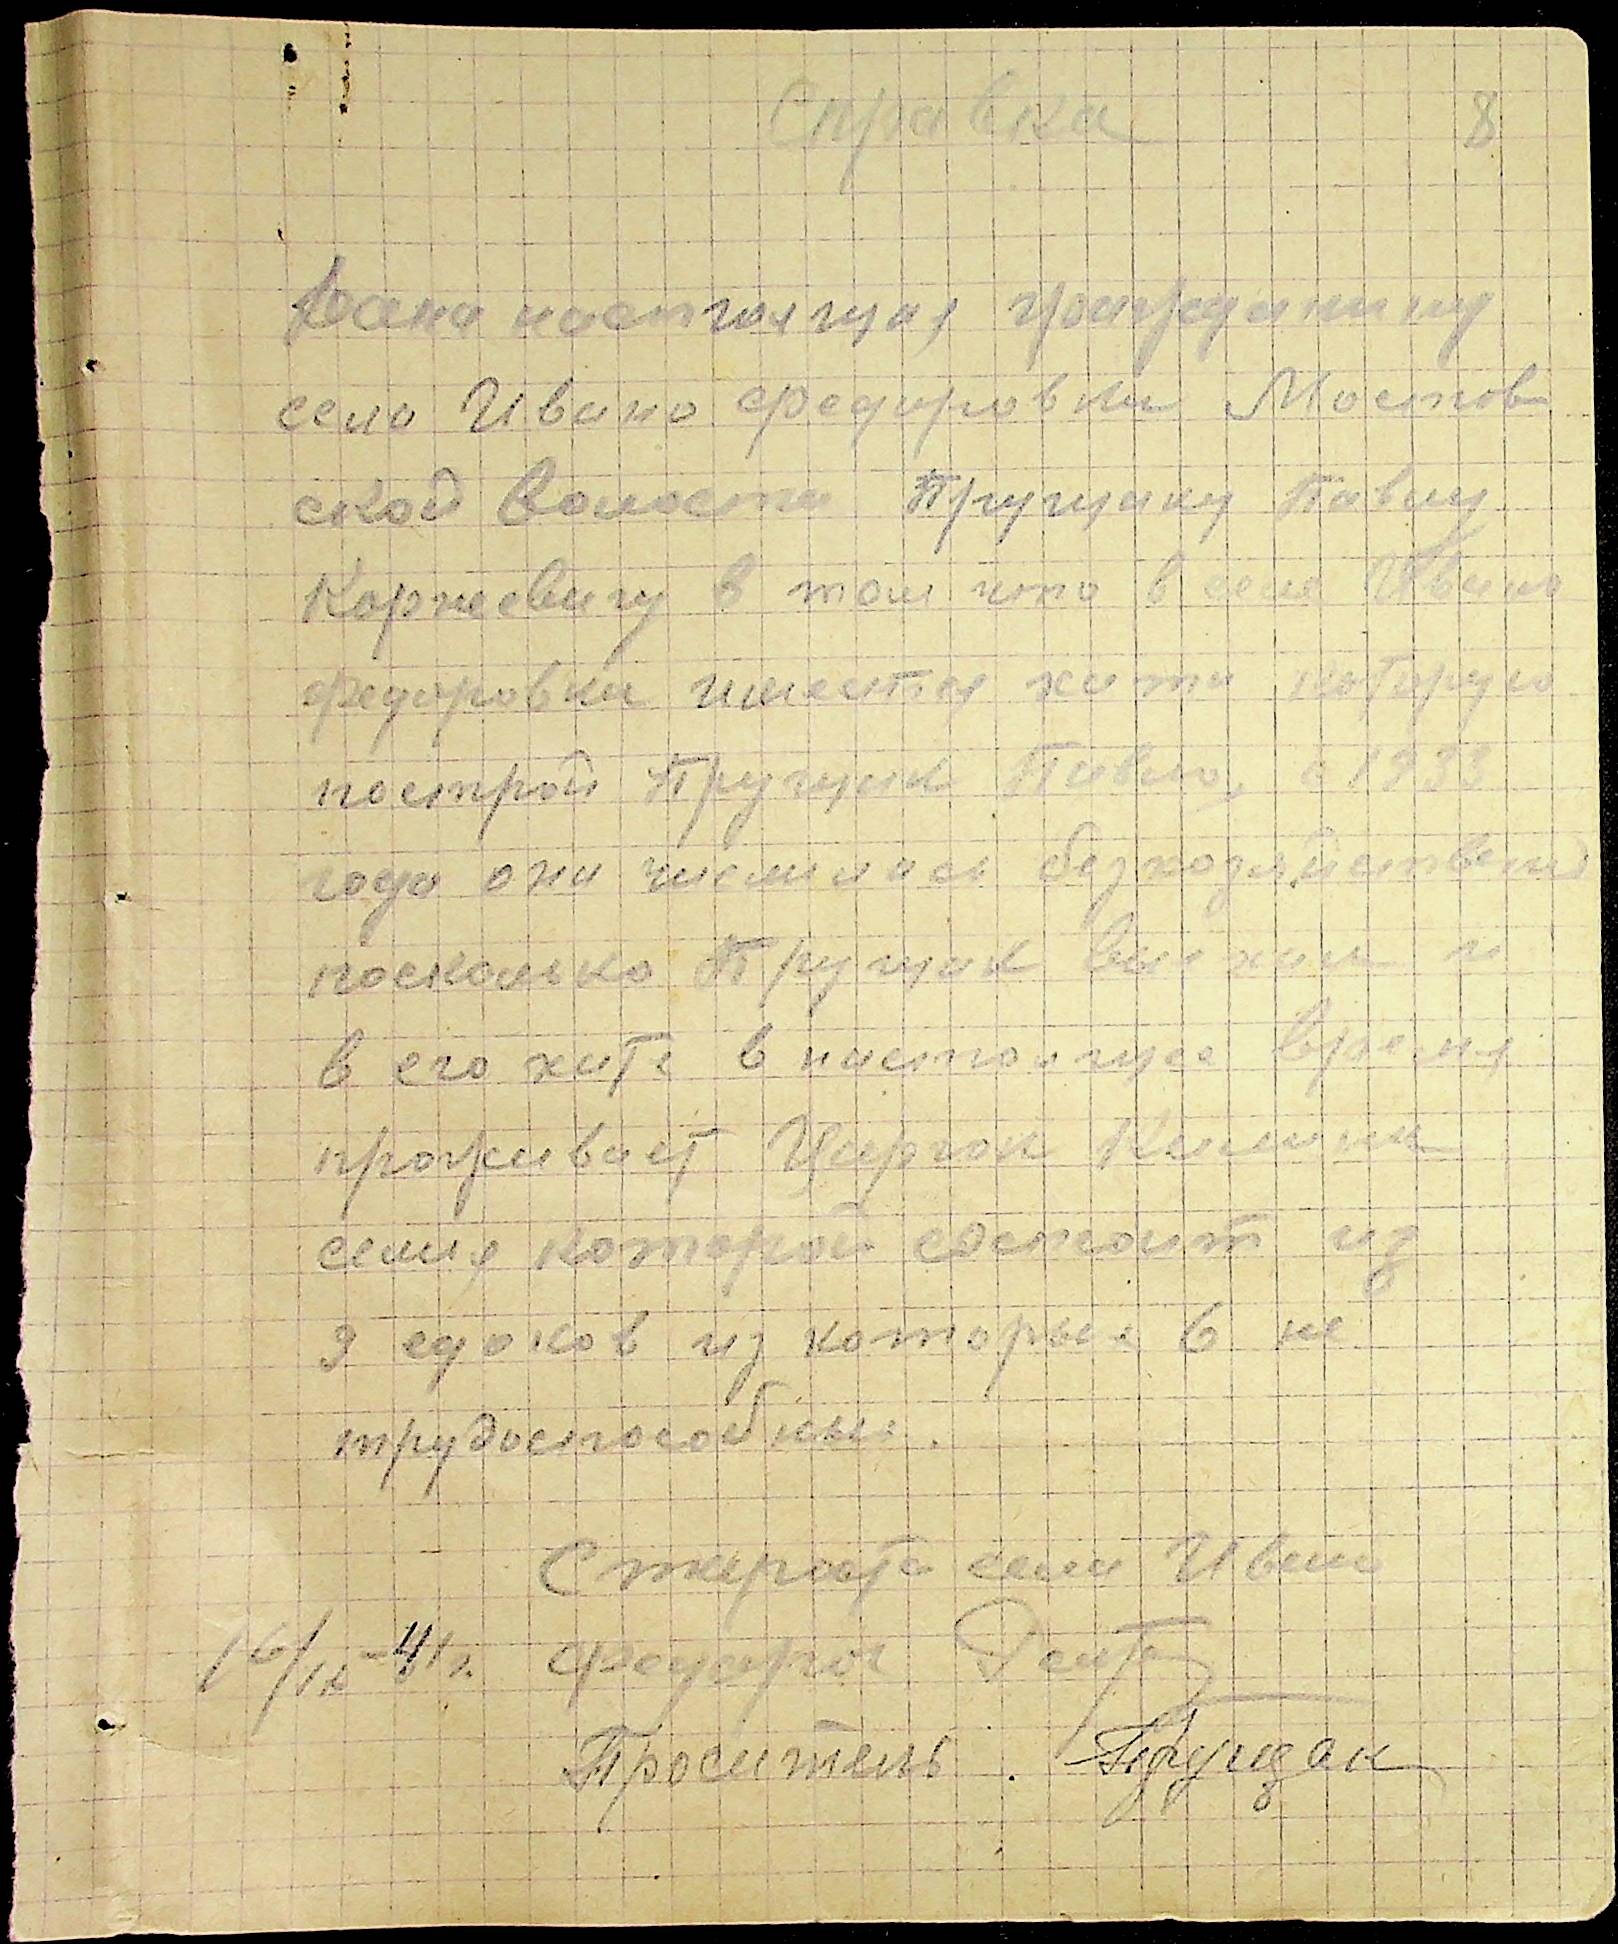 Справка 8
Дана настоящая гражданину
села Ивано Федоровки Мостов
ской Волости Прущаку Павлу
Корнеевичу в том что в селе Ивано
Федоровки имеется хата которую
построй Прущак Павло, с 1933
года она числилась безхозяйствений
посколько Прущак выехал и
в его хате в настоящее время
проживает Килина
семя которой состоит из
9 едоков из которых 6 не
трудоспособных.
Староста села Ивано
16/IX-41г. Федоро
Проситель. Прущак